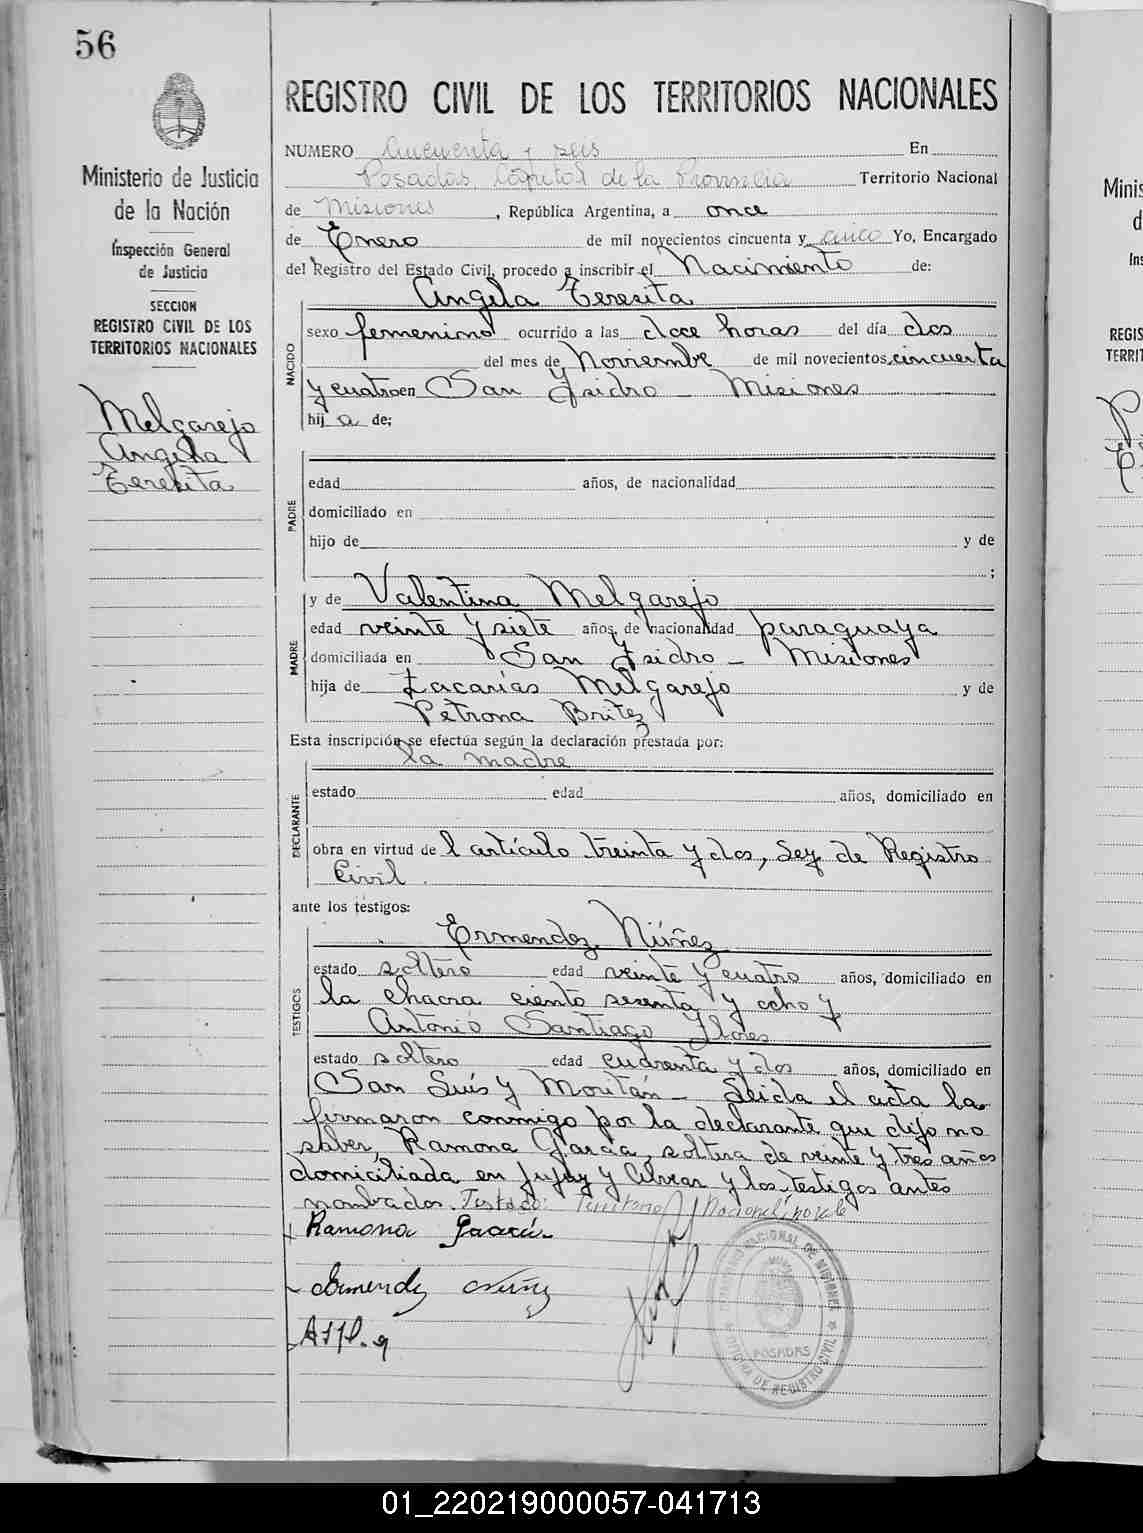 56
Ministerio de Justicia
de la Nación
Inspección General
de Justicia
SECCION
REGISTRO CIVIL DE LOS
TERRITORIOS NACIONALES
Melgarejo
Angela
Teresita
REGISTRO CIVIL DE LOS TERRITORIOS NACIONALES
NUMERO Cincuenta y seis En
Posadas, Capital de la Provincia Territorio Nacional
de Misiones, República Argentina, a once
de Enero de mil novecientos cincuenta y cinco Yo, Encargado
del Registro del Estado Civil, procedo a inscribir el Nacimiento de:
Angela Teresita
NACIDO
sexo femenino ocurrido a las doce horas del día dos
del mes de Noviembre de mil novecientos cincuenta
y cuatro en San Ysidro - Misiones
hija de;
PADRE
edad años, de nacionalidad
domiciliado en
hijo de y de
;
MADRE
y de Valentina Melgarejo
edad veinte y siete años, de nacionalidad paraguaya
domiciliada en San Ysidro - Misiones
hija de Zacarías Melgarejo y de
Petrona Britez
Esta inscripción se efectúa según la declaración prestada por:
la madre
DECLARANTE
estado edad años, domiciliado en
obra en virtud del artículo treinta y dos, Ley de Registro
Civil.
ante los testigos:
TESTIGOS
Ermendez Núñez
estado soltero edad veinte y cuatro años, domiciliado en
la chacra ciento sesenta y ocho y
Antonio Santiago Flores
estado soltero edad cuarenta y dos años, domiciliado en
San Luis y Moritán - Leida el acta la
firmaron conmigo por la declarante que dijo no
saber, Ramona García, soltera de veinte y tres años
domiciliada en Jujuy y Alvear y los testigos antes
nombrados. Testado: Territorio Nacional, no vale
Ramona García
Ermendez Núñez
TERRITORIO NACIONAL DE MISIONES
POSADAS
OFICINA DE REGISTRO CIVIL
01_220219000057-041713